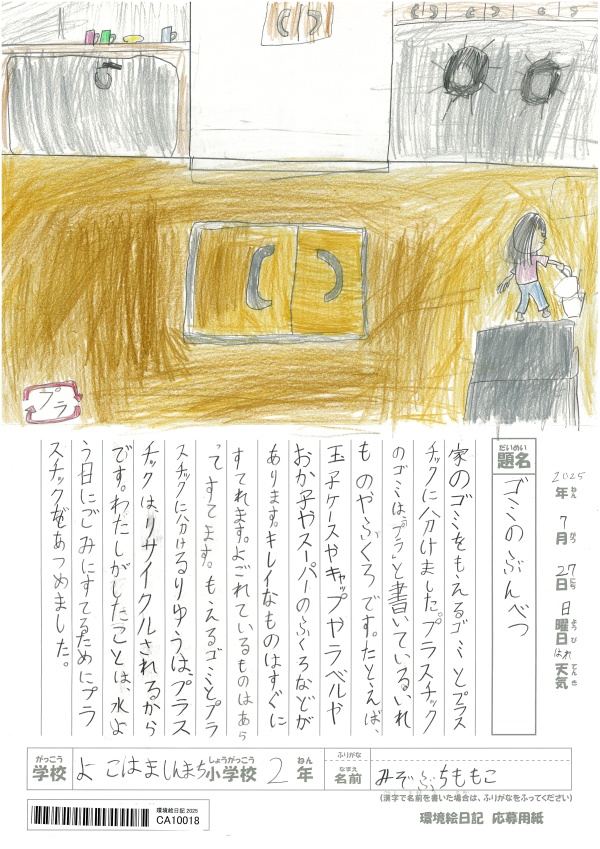 プラ
2025年 7月 27日 日曜日 はれ 天気
ねん がつ にち ようび てんき
だいめい
題名
ゴミのぶんべつ
家のゴミをもえるゴミとプラス
チックに分けました。プラスチック
のゴミは、「プラ」と書いているいれ
ものやふくろです。たとえば、
玉子ケースやキャップやラベルや
おか子やスーパーのふくろなどが
あります。キレイなものはすぐに
すてれます。よごれているものはあら
ってすてます。もえるゴミとプラ
スチックに分けるりゆうは、プラス
チックは、リサイクルされるから
です。わたしがしたことは、水よ
う日にごみにすてるためにプラ
スチックをあつめました。
がっこう
学校
よこはましんまち
しょうがっこう
小学校
2
ねん
年
ふりがな
なまえ
名前
みぞぶちももこ
(漢字で名前を書いた場合は、ふりがなをふってください)
環境絵日記 2025
CA10018
環境絵日記 応募用紙